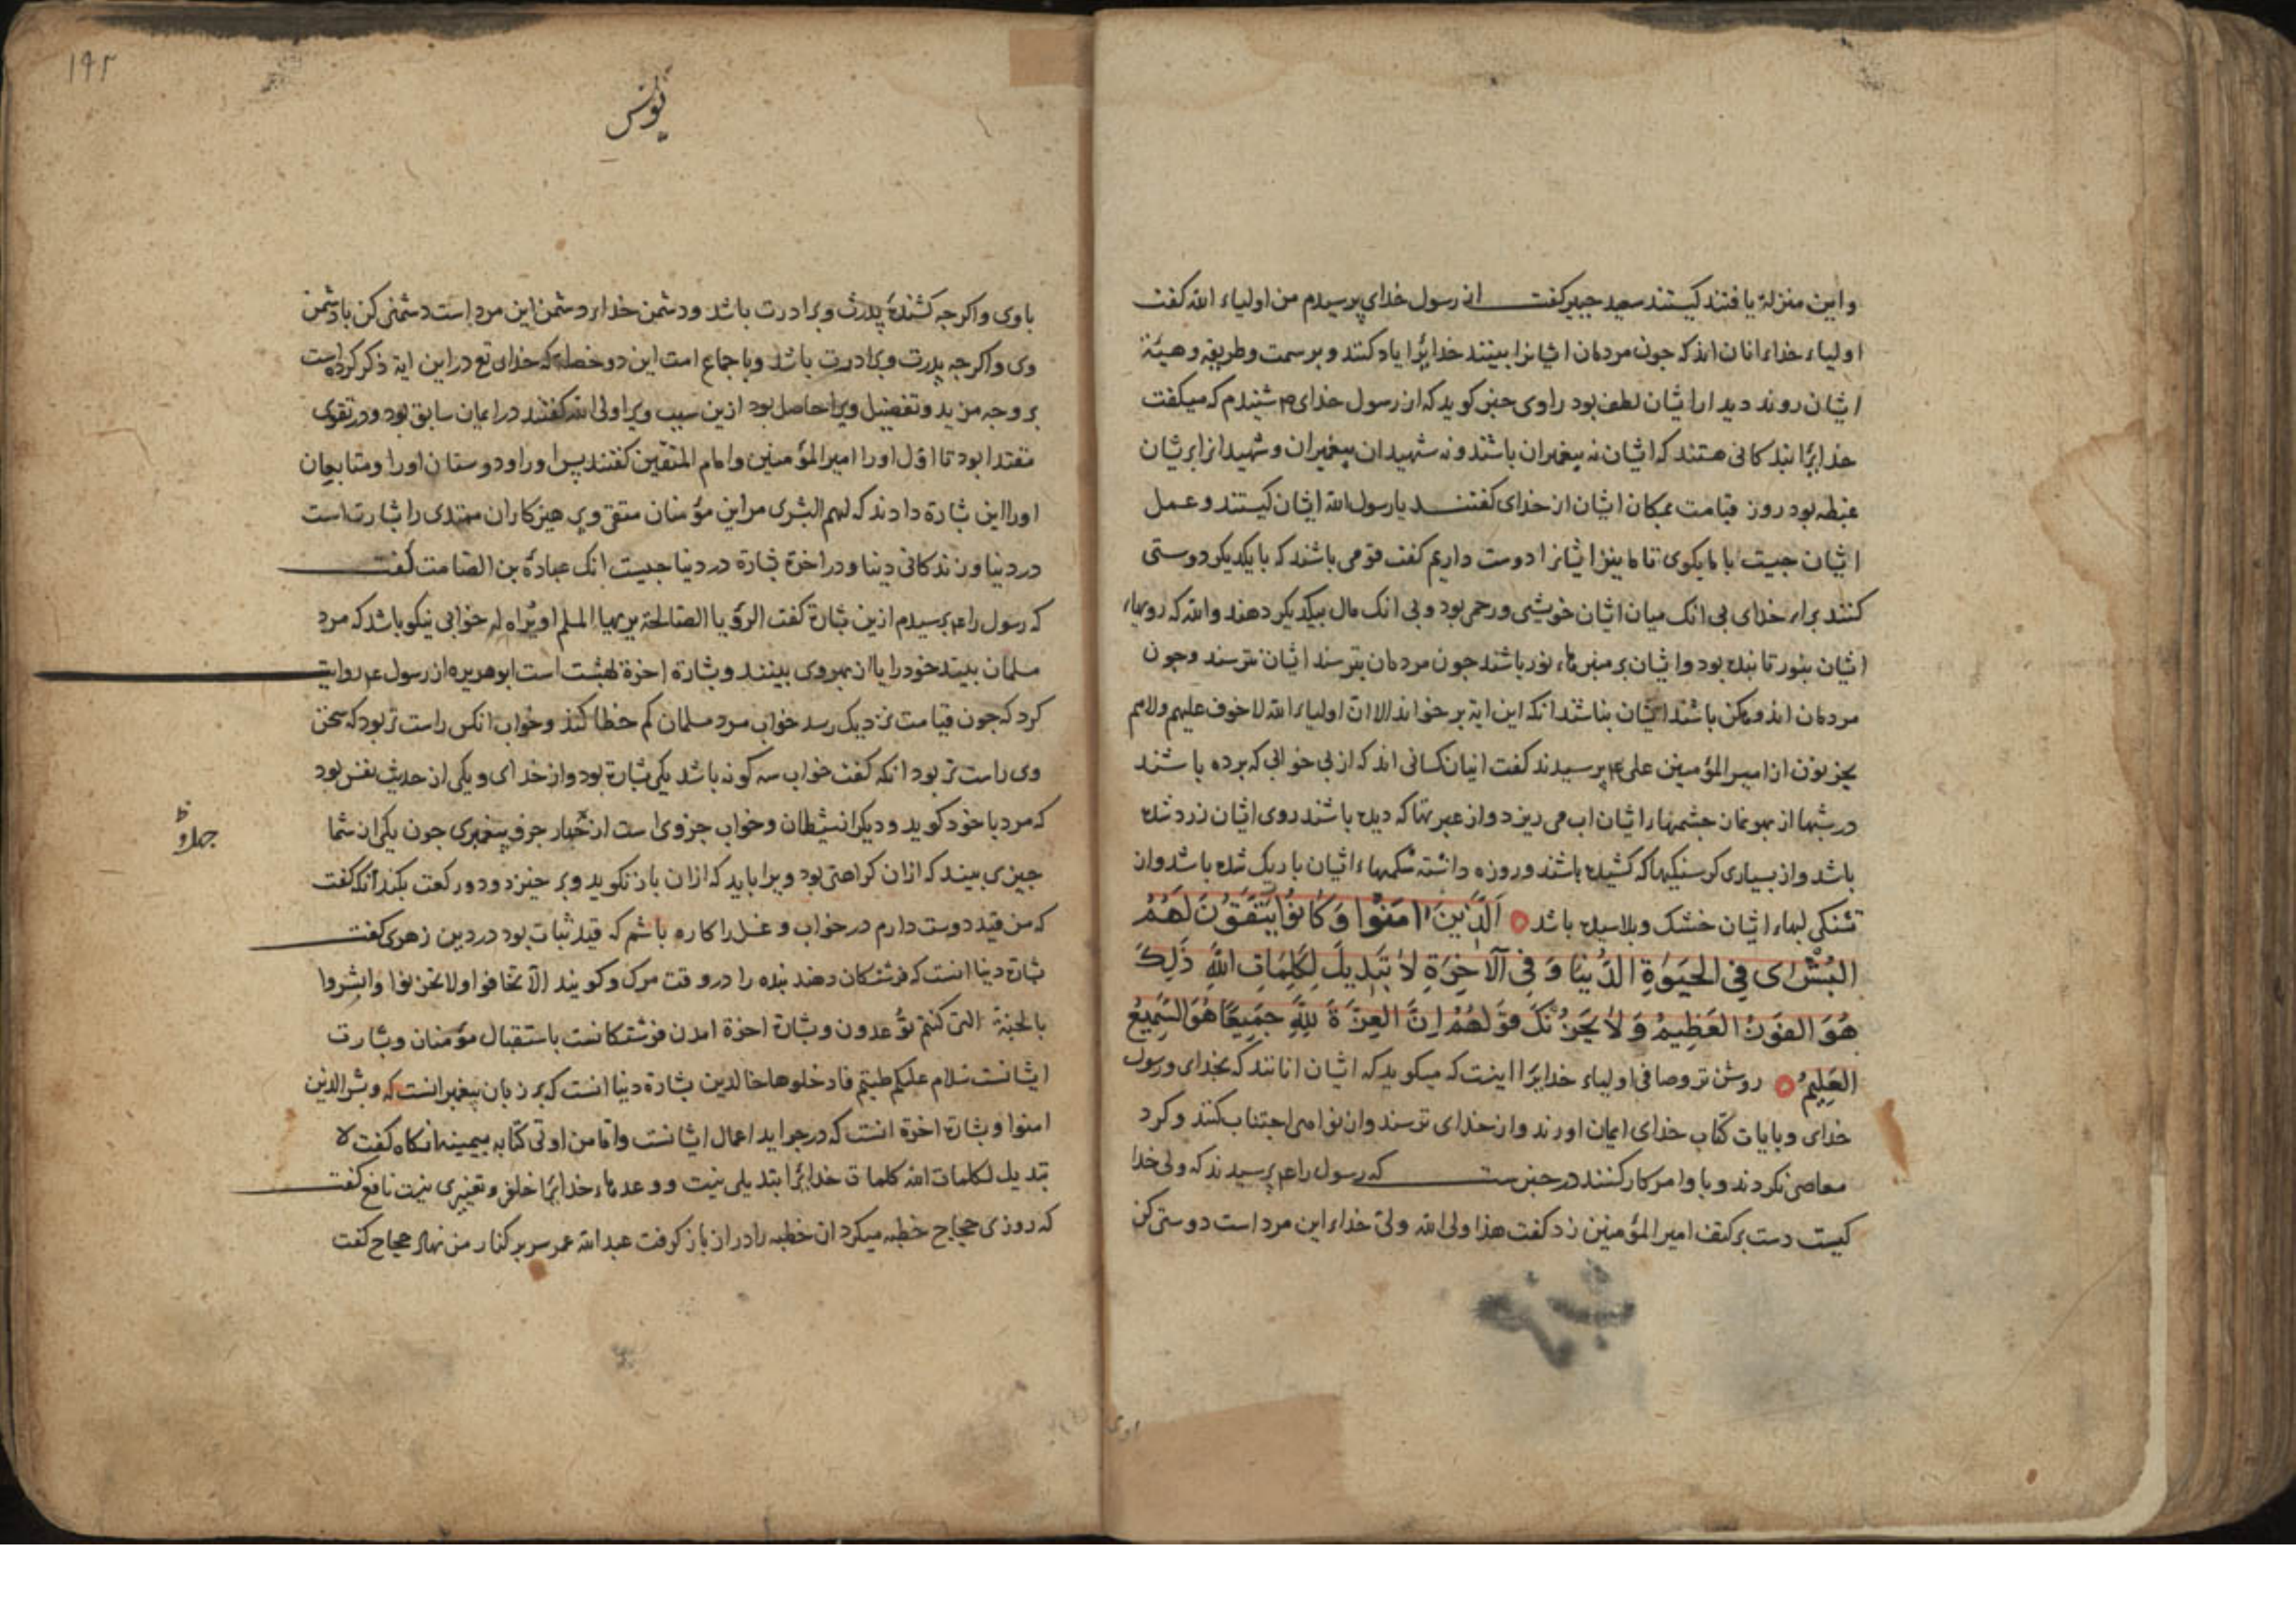 و این منزلة یافتند کیستند سعید جبیر کفت از رسول خدای پرسیدم من اولیاء الله کفت
اولیاء خداء انان اند که جون مردمان ایشانرا بینند خدایرا یاد کنند و بر سمت و طریقه و هیئة
ایشان روند دیدار ایشان لطف بود راوی خبر کوید که از رسول خدای شنیدم که میکفت
خدایرا بندکانی هستند که ایشان نه پیغمبران باشند و نه شهیدان پیغمبران و شهیدانرا بریشان
غبطه بود روز قیامت بمکان ایشان از خدای کفتند یا رسول الله ایشان کیستند و عمل
ایشان جیست با ما بکوی تا ما نیز ایشانرا دوست داریم کفت قومی باشند که با یکدیکر دوستی
کنند براء خدای بی انک میان ایشان خویشی و رحمی بود و بی انک مال بیکدیکر دهند والله که رویهاء
ایشان بنور تابنده بود و ایشان بر منبرهاء نور باشند جون مردمان بترسند ایشان نترسند و جون
مردمان اندوهکن باشند ایشان نباشند انکه این ایة بر خواند الا ان اولیاء الله لا خوف علیهم ولا هم
یحزنون از امیر المؤمنین علی پرسیدند کفت ایشان کسانی اند که از بی خوابی که برده باشند
در شبها از بهر نماز جشمهاء ایشان اب می ریزد و از عبرتها که دیده باشند روی ایشان زرد شده
باشد و از بسیاری کرسنکیها که کشیده باشند و روزه داشته شکمهاء ایشان باریک شده باشد و از
تشنکی لبهاء ایشان خشک و بلاسیده باشد الَّذِینَ امَنُوا وَكَانُوا يَتَّقُونَ لَهُمُ
البُشْرَى فِي الحَيَوٰةِ الدُّنْيَا وَفِي الآخِرَةِ لَا تَبْدِيلَ لِكَلِمَاتِ اللَّهِ ذَلِكَ
هُوَ الفَوْزُ العَظِيمُ وَلَا يَحْزُنْكَ قَوْلُهُمْ اِنَّ العِزَّةَ لِلَّهِ جَمِيعًا هُوَ السَّمِيعُ
العَلِيمُ روشن تر وصافی اولیاء خدایرا اینست که میکوید که ایشان انانند که بخدای و رسول
خدای و بایات کتاب خدای ایمان اورند و از خدای ترسند و از نواهی اجتناب کنند و کرد
معاصی نکردند و باوامر کار کنند در خبرست که رسول را پرسیدند که ولی خدا
کیست دست بر کتف امیر المؤمنین زد کفت هذا ولی الله ولی خداء این مرد است دوستی کن
۱۹۲
یونس
باوی و اکرجه کشندهٔ پدرت و برادرت باشد و دشمن خداء دشمن این مرد است دشمنی کن با دشمن
وی و اکرجه پدرت و برادرت باشد و باجماع امت این دو خصلة که خدای تع در این ایة ذکر کرده است
بر وجه مزید و تفضیل ویرا حاصل بود ازین سبب ویرا ولی الله کفتند در ایمان سابق بود و در تقوی
مقتدا بود تا اول اورا امیر المؤمنین و امام المتقین کفتند پس اورا و دوستان اورا و متابعان
اورا این بشارة دادند که لهم البشری مر این مؤمنان متقی و پرهیزکاران مهتدی را بشارتست
در دنیا و زندکانی دینا و در اخرة بشارة در دنیا جیست انک عبادة بن الصامت کفت
که رسول را پرسیدم ازین بشارة کفت الرؤیا الصالحة یریها المسلم او یراه له خوابی نیکو باشد که مرد
مسلمان بیند خود را یا از بهر وی بینند و بشارة اخرة بهشت است ابوهریره از رسول روایة
کرد که جون قیامت نزدیک رسد خواب مرد مسلمان کم خطا کند و خواب انکس راست تر بود که سخن
وی راست تر بود انکه کفت خواب سه کونه باشد یکی بشارة بود و از خدای و یکی از حدیث نفس بود
که مرد با خود کوید و دیکر از شیطان و خواب جزوی است از پیغمبری جون یکی از شما
جیزی بیند که ازان کراهتی بود ویرا باید که ازان باز نکوید و بر خیزد و دو رکعت بکند انکه کفت
که من قید دوست دارم در خواب و غل را کاره باشم که قید ثبات بود در دین زهری کفت
بشارة دینا انست که فرشتکان دهند بنده را در وقت مرک و کویند الا تخافوا ولا تحزنوا وابشروا
بالجنة التی کنتم توعدون و بشارة اخرة امدن فرشتکانست باستقبال مؤمنان و بشارت
ایشانست سلام علیکم طبتم فادخلوها خالدین بشارة دینا انست که بر زبان پیغمبرانست که وبشر الذین
امنوا و بشارة اخرة انست که در جراید اعمال ایشانست واما من اوتی کتابه بیمینه انکاه کفت لا
تبدیل لکلمات الله کلمات خدایرا تبدیلی نیست و وعدهاء خدایرا خلف و تغییری نیست نافع کفت
که روزی حجاج خطبه میکرد ان خطبه را دراز باز کرفت عبدالله عمر سر بر کنار من نهاد حجاج کفت